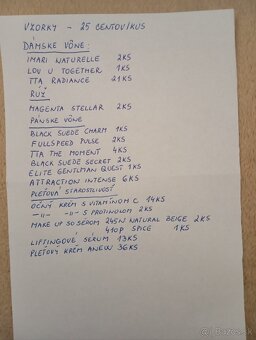 VZORKY - 25 CENTOV/KUS
DÁMSKE VÔNE:
IMARI NATURELLE 2KS
LOV U TOGETHER 1KS
TTA RADIANCE 21KS
RÚŽ
MAGENTA STELLAR 2KS
PÁNSKE VÔNE
BLACK SUEDE CHARM 1KS
FULLSPEED PULSE 2KS
TTA THE MOMENT 4KS
BLACK SUEDE SECRET 2KS
ELITE GENTLMAN QUEST 1KS
ATTRACTION INTENSE 6KS
PLEŤOVÁ STAROSTLIVOSŤ
OČNÝ KRÉM S VITAMÍNOM C 14KS
-11- -11- S PROTINOLOM 2KS
MAKE UP SO SÉROM 245N NATURAL BEIGE 2KS
410P SPICE 1KS
LIFTINGOVÉ SÉRUM 13KS
PLEŤOVÝ KRÉM ANEW 36KS
bazos.sk